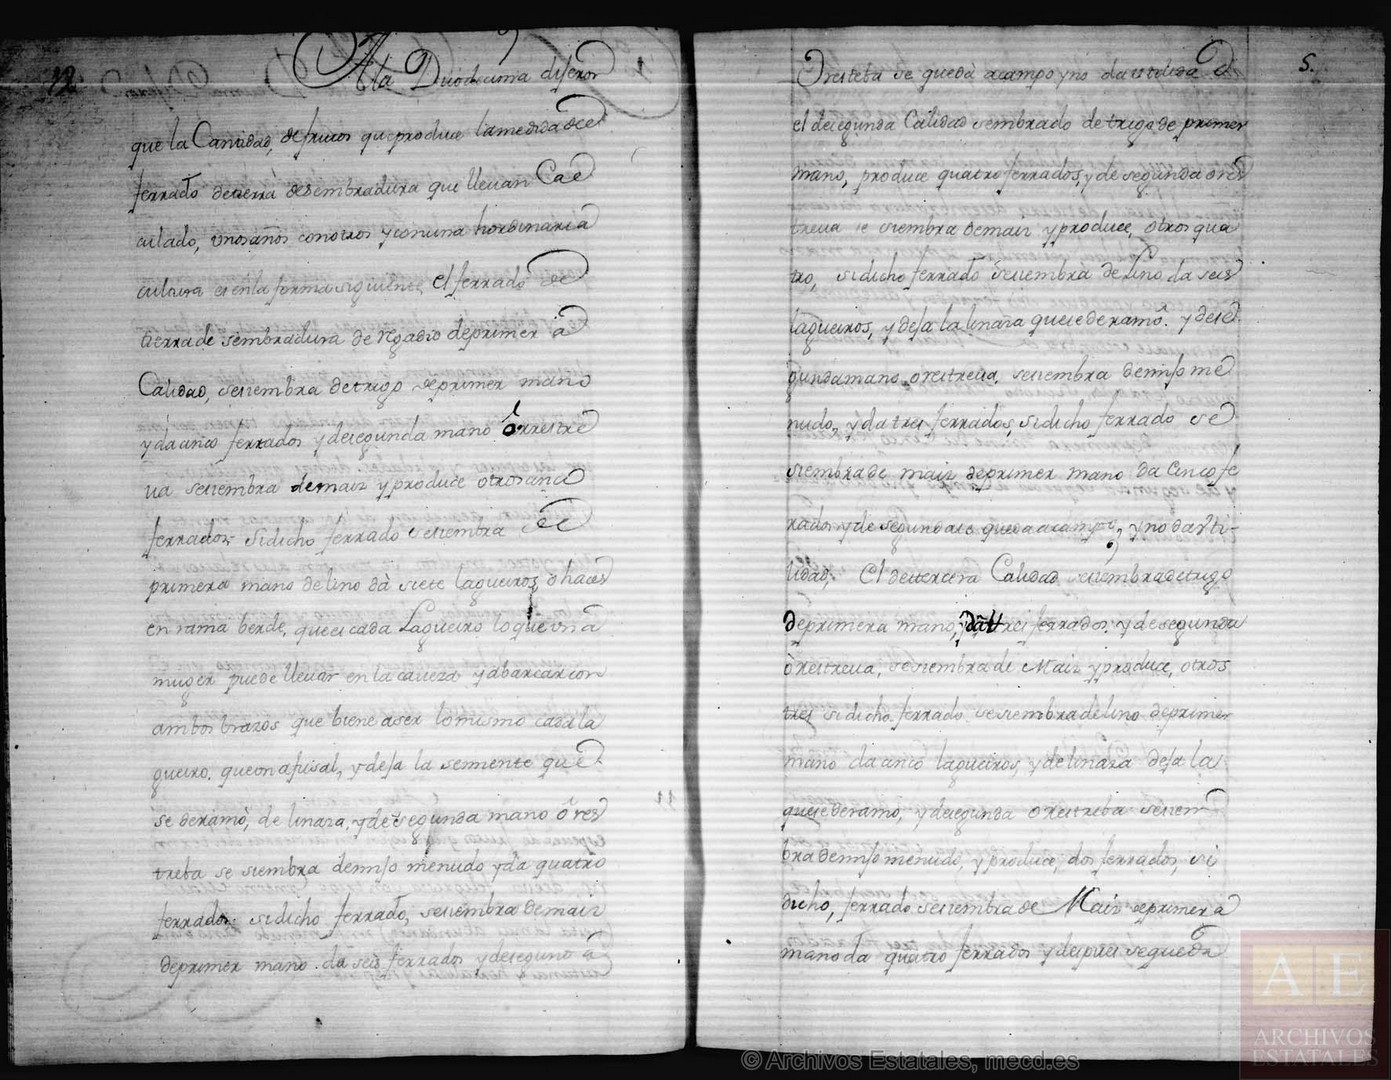 12. A la Duodecima dijeron
que la Cantidad, de frutos que produce la medida de
ferrado de tierra de sembradura que llevan Cae
culado, unos años con otros y con una hordinaria
cultura es en la forma siguiente el ferrado de
tierra de sembradura de Regadio de primera
Calidad, se siembra de trigo de primer mano
y da cinco ferrados y de segunda mano ô rrestre
va se siembra de maiz y produce otros cinco
ferrados. si dicho ferrado se siembra de
primera mano de lino dà siete lagueiros, o haces
en rama berde, que es cada Lagueiro lo que una
muger puede llevar en la caveza y abarcar con
ambos brazos que biene a ser lo mismo cada la
gueiro. que on afusal, y deja la semente que
se deramò, de linaza, y de segunda mano ô res
treba se siembra de mijo menudo y da quatro
ferrados. si dicho ferrado, se siembra de maiz
de primer mano da seis ferrados y de seguno a
5.
Oresteba se queda a campo y no da utilidad
el de segunda Calidad sembrado de trigo de primer
mano, produce quatro ferrados, y de segunda ô res
treva se siembra de maiz y produce, otros qua
tro, si dicho ferrado se siembra de lino da seis
lagueiros, y deja la linaza que se deramô. y de se
gunda mano o restreva. se siembra de mijo me
nudo, y da tres ferrados, si dicho ferrado se
siembra de maiz de primer mano da Cinco fe
rados y de segunda se queda a campo, y no da Uti-
lidad, El de tercera Calidad se siembra de trigo
de primera mano, y da tres ferrados. y de segunda
ô restreva, se siembra de Maiz y produce, otros
tres si dicho ferrado se siembra de lino de primer
mano da cinco lagueiros, y de linaza deja la
que se deramo, y de segunda o restreba se siem
bra de mijo menudo, y produce, dos ferrados, si
dicho, ferrado se siembra de Maiz de primera
mano da quatro ferrados y despues se queda
© Archivos Estatales, mecd.es
AE
ARCHIVOS
ESTATALES